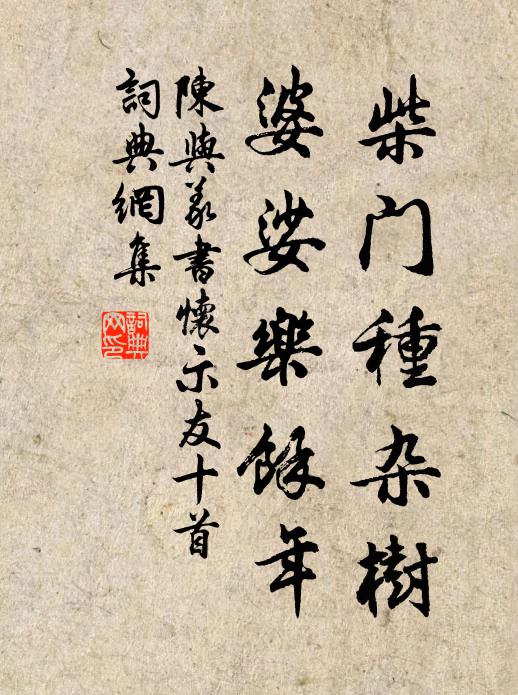 柴门種杂樹
婆娑樂餘年
陳與義書懷示友十首
詞典網集
詞典网印